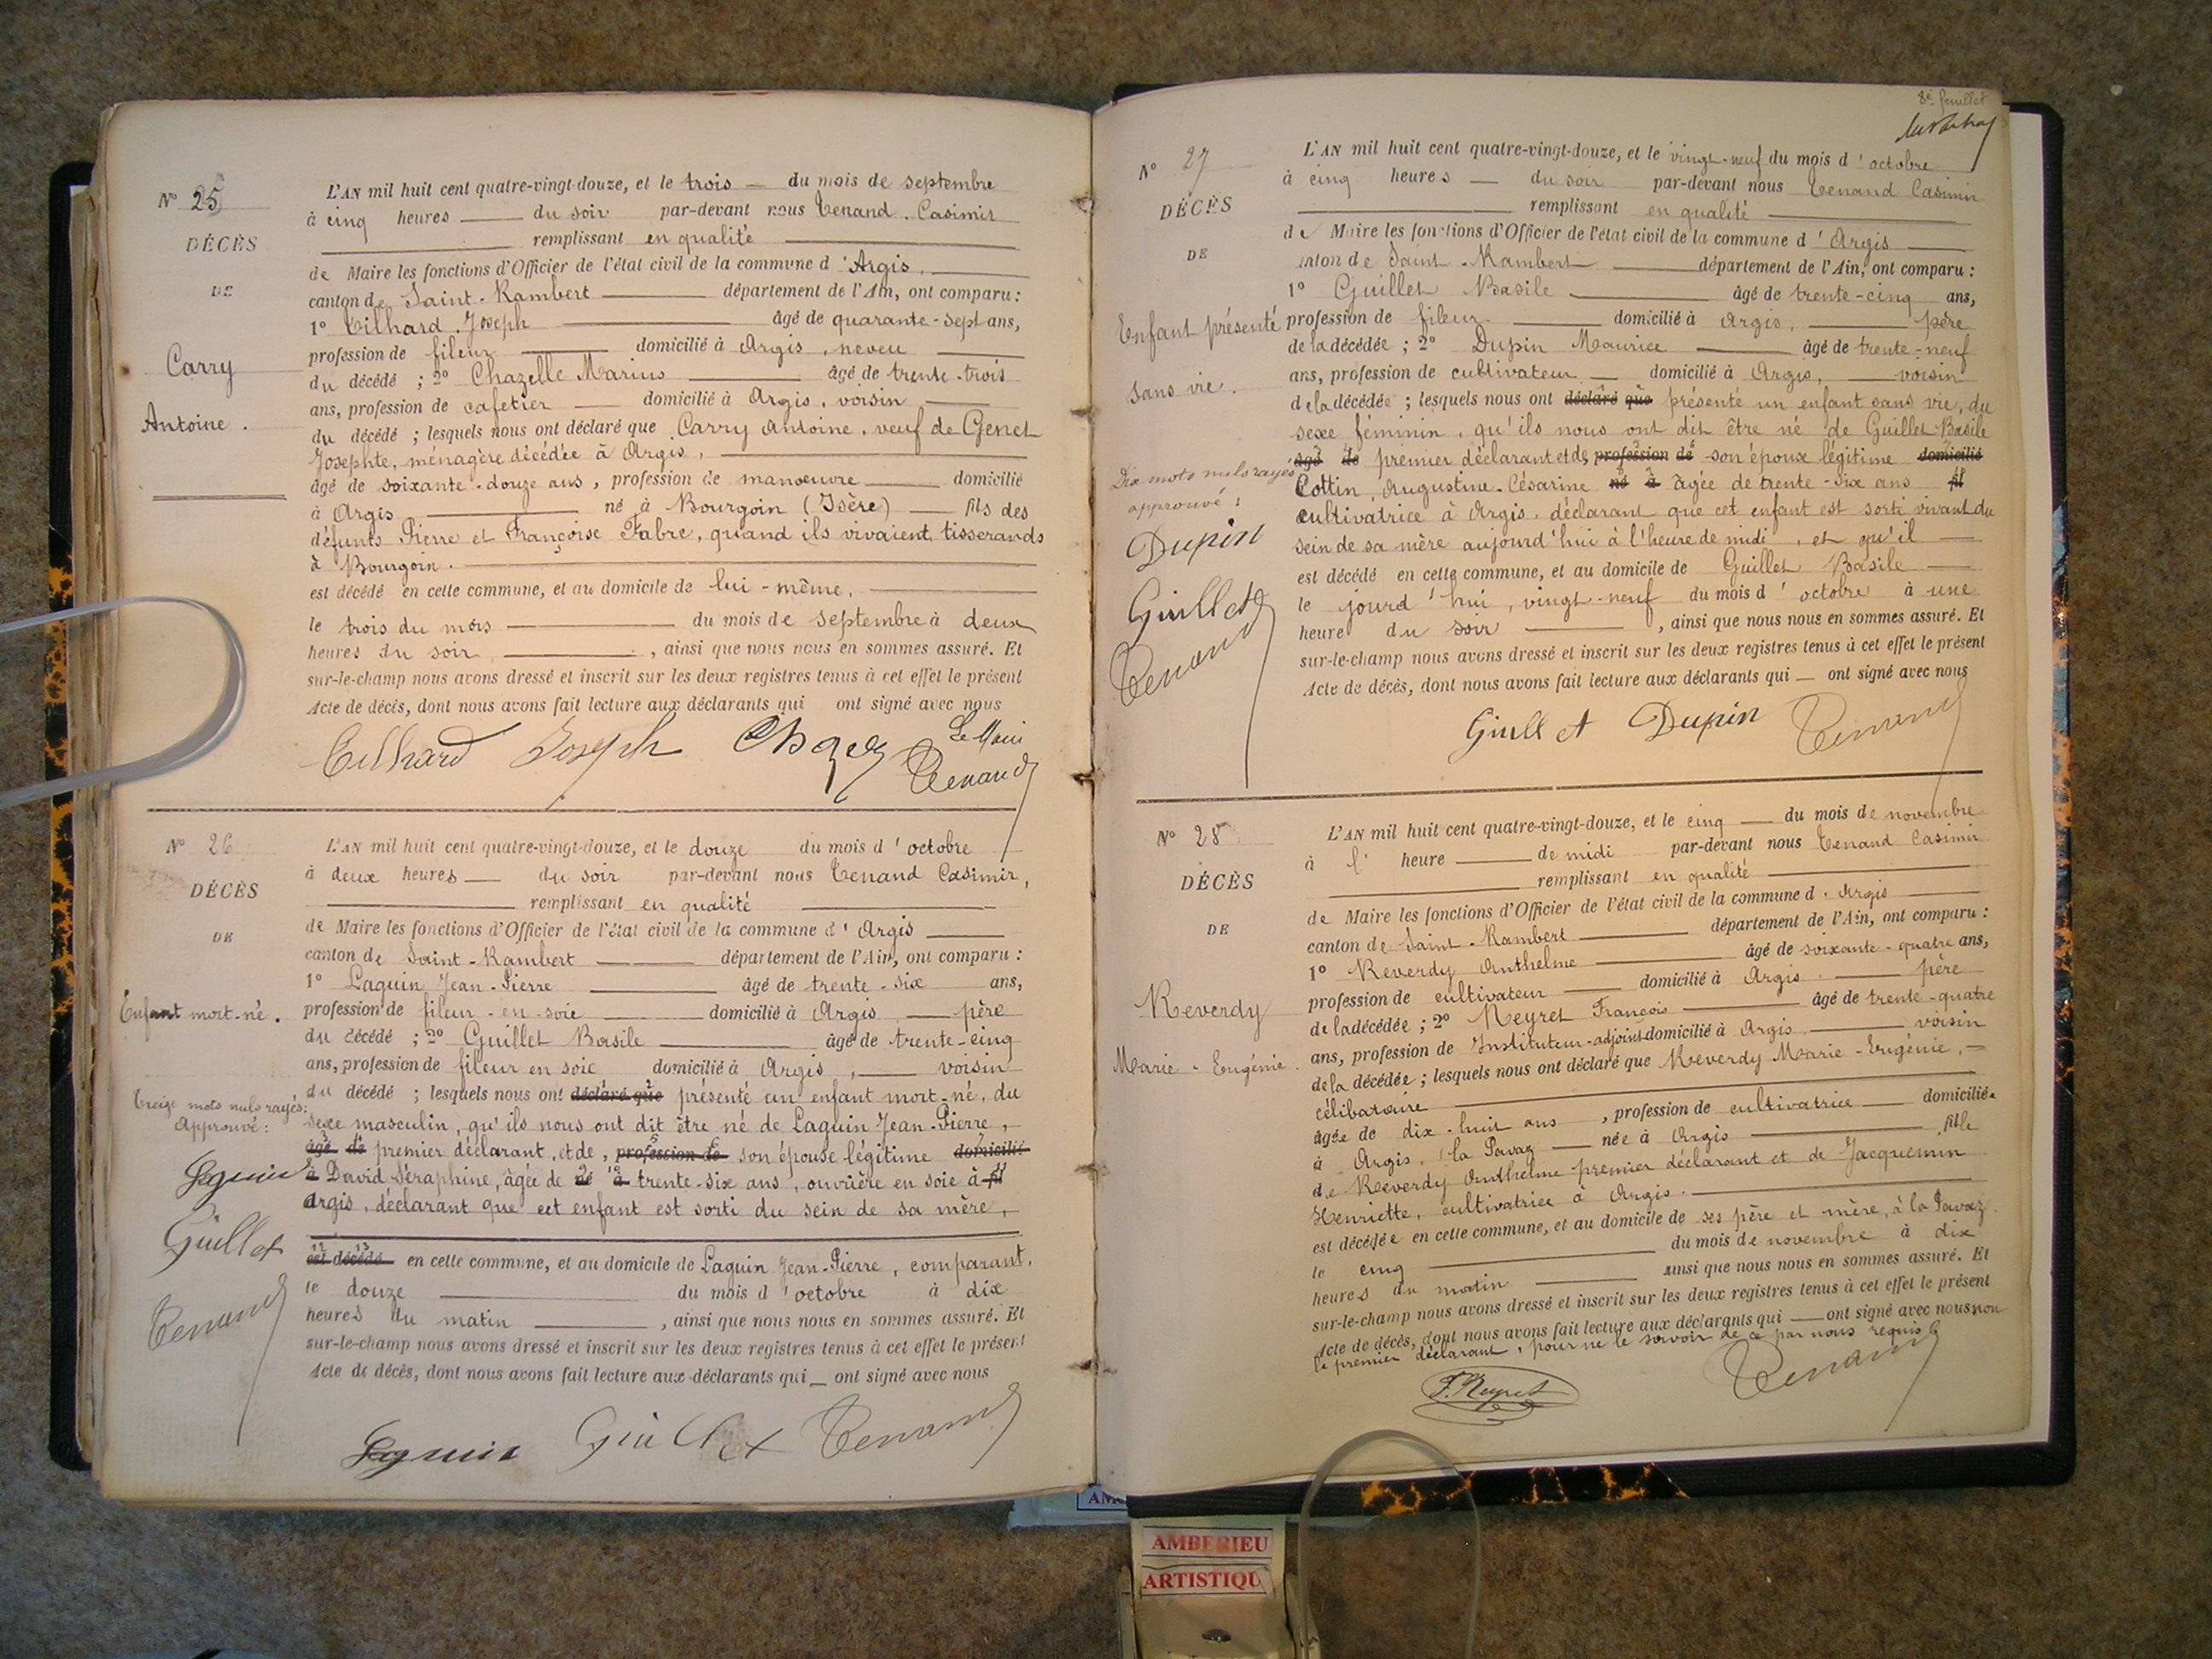 N° 25
DÉCÈS
DE
Carry
Antoine.
L'AN mil huit cent quatre-vingt-douze, et le trois — du mois de septembre
à cinq heures — du soir par-devant nous Tenand. Casimir
remplissant en qualité
de Maire les fonctions d'Officier de l'état civil de la commune d'Argis.
canton de Saint-Rambert — département de l'Ain, ont comparu :
1° Tilhard. Joseph — âgé de quarante-sept ans,
profession de fileur — domicilié à Argis, neveu
du décédé ; 2° Chazelle Marius — âgé de trente-trois
ans, profession de cafetier — domicilié à Argis, voisin
du décédé ; lesquels nous ont déclaré que Carry Antoine, veuf de Genet
Josephte, ménagère décédée à Argis,
âgé de soixante-douze ans, profession de manoeuvre — domicilié
à Argis — né à Bourgoin (Isère) — fils des
défunts Pierre et Françoise Fabre, quand ils vivaient, tisserands
à Bourgoin.
est décédé en cette commune, et au domicile de lui-même,
le trois du mois — du mois de septembre à deux
heures du soir — , ainsi que nous nous en sommes assuré. Et
sur-le-champ nous avons dressé et inscrit sur les deux registres tenus à cet effet le présent
Acte de décès, dont nous avons fait lecture aux déclarants qui ont signé avec nous
Tilhard Joseph Le Maire
Tenand
N° 26
DÉCÈS
DE
Enfant mort-né.
Treize mots nuls rayés:
Approuvé:
Laguin
Guillet
Tenand
L'AN mil huit cent quatre-vingt-douze, et le douze du mois d'octobre
à deux heures — du soir par-devant nous Tenand Casimir,
remplissant en qualité
de Maire les fonctions d'Officier de l'état civil de la commune d'Argis
canton de Saint-Rambert — département de l'Ain, ont comparu :
1° Laguin Jean-Pierre — âgé de trente-six ans,
profession de fileur-en-soie — domicilié à Argis — père
du décédé ; 2° Guillet Basile — âgé de trente-cinq
ans, profession de fileur en soie domicilié à Argis, — voisin
du décédé ; lesquels nous ont déclaré que présenté un enfant mort-né, du
sexe masculin, qu'ils nous ont dit être né de Laguin Jean-Pierre,
âgé de premier déclarant, et de, profession de son épouse légitime domicilié
à David Séraphine, âgée de né à trente-six ans, ouvrière en soie à fil
Argis, déclarant que cet enfant est sorti du sein de sa mère,
est décédé en cette commune, et au domicile de Laguin Jean-Pierre, comparant,
le douze — du mois d'octobre à dix
heures du matin — , ainsi que nous nous en sommes assuré. Et
sur-le-champ nous avons dressé et inscrit sur les deux registres tenus à cet effet le présent
Acte de décès, dont nous avons fait lecture aux déclarants qui — ont signé avec nous
Laguin Guillet Tenand
8e feuillet
N° 27
DÉCÈS
DE
Enfant présenté
sans vie.
Dix mots nuls rayés
approuvé :
Dupin
Guillet
Tenand
L'AN mil huit cent quatre-vingt-douze, et le vingt-neuf du mois d'octobre
à cinq heures — du soir par-devant nous Tenand Casimir
remplissant en qualité
de Maire les fonctions d'Officier de l'état civil de la commune d'Argis
canton de Saint-Rambert — département de l'Ain, ont comparu :
1° Guillet Basile — âgé de trente-cinq ans,
profession de fileur — domicilié à Argis, — père
de la décédée ; 2° Dupin Maurice — âgé de trente-neuf
ans, profession de cultivateur — domicilié à Argis, — voisin
de la décédée ; lesquels nous ont déclaré que présenté un enfant sans vie, du
sexe féminin, qu'ils nous ont dit être né de Guillet Basile
âgé de premier déclarant et de profession de son épouse légitime domicilié
Cottin, Augustine-Césarine né à âgée de trente-six ans fil
cultivatrice à Argis, déclarant que cet enfant est sorti vivant du
sein de sa mère aujourd'hui à l'heure de midi, et qu'il —
est décédé en cette commune, et au domicile de Guillet Basile —
le jourd'hui, vingt-neuf du mois d'octobre à une
heure du soir — , ainsi que nous nous en sommes assuré. Et
sur-le-champ nous avons dressé et inscrit sur les deux registres tenus à cet effet le présent
Acte de décès, dont nous avons fait lecture aux déclarants qui — ont signé avec nous
Guillet Dupin Tenand
N° 28
DÉCÈS
DE
Reverdy
Marie-Eugénie.
L'AN mil huit cent quatre-vingt-douze, et le cinq — du mois de novembre
à l' heure — de midi par-devant nous Tenand Casimir
remplissant en qualité
de Maire les fonctions d'Officier de l'état civil de la commune d'Argis
canton de Saint-Rambert — département de l'Ain, ont comparu :
1° Reverdy Anthelme — âgé de soixante-quatre ans,
profession de cultivateur — domicilié à Argis — père
de la décédée ; 2° Neyret François — âgé de trente-quatre
ans, profession de Instituteur-adjoint domicilié à Argis — voisin
de la décédée ; lesquels nous ont déclaré que Reverdy Marie-Eugénie, —
célibataire
âgée de dix-huit ans, profession de cultivatrice — domiciliée
à Argis, la Pavaz — née à Argis — fille
de Reverdy Anthelme premier déclarant et de Jacquemin
Henriette, cultivatrice à Argis.
est décédée en cette commune, et au domicile de ses père et mère, à la Pavaz.
le cinq — du mois de novembre à dix
heures du matin — ainsi que nous nous en sommes assuré. Et
sur-le-champ nous avons dressé et inscrit sur les deux registres tenus à cet effet le présent
Acte de décès, dont nous avons fait lecture aux déclarants qui — ont signé avec nous non
le premier déclarant, pour ne le savoir de ce par nous requis
F. Neyret Tenand
AMBERIEU
ARTISTIQU